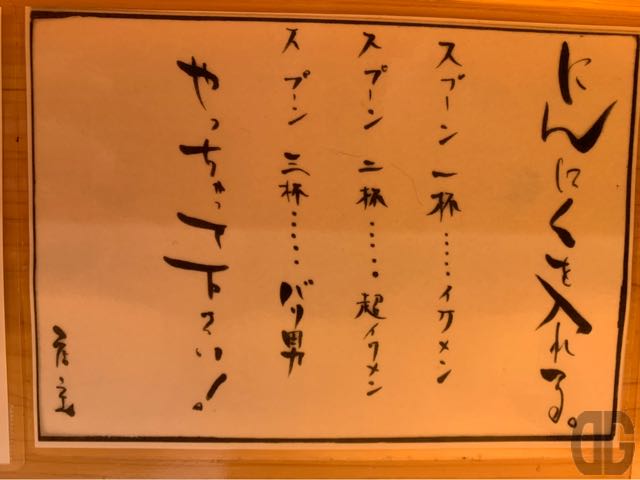 にんにくを入れる。
スプーン 一杯……イケメン
スプーン 二杯……超イケメン
スプーン 三杯……バリ男
やっちゃって下さい!
店主
DG